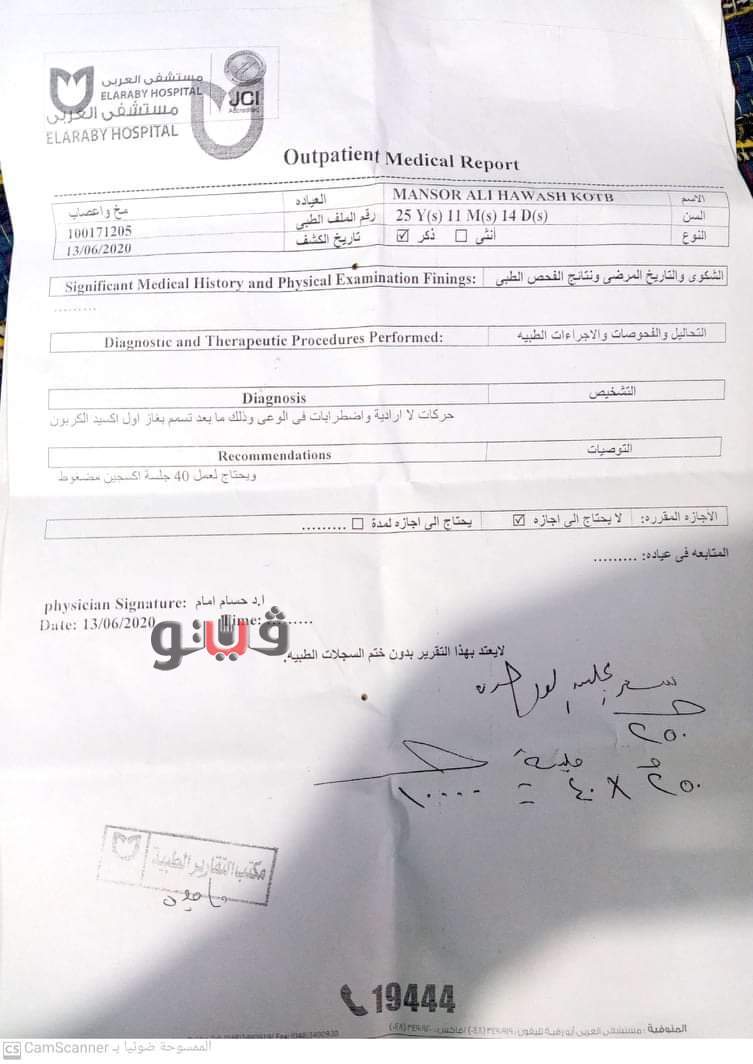 مستشفى العربى
ELARABY HOSPITAL
مستشفى العربى
ELARABY HOSPITAL
JCI
Accredited
Outpatient Medical Report
الاسم MANSOR ALI HAWASH KOTB العياده مخ واعصاب
السن 25 Y(s) 11 M(s) 14 D(s) رقم الملف الطبى 100171205
النوع ☑ ذكر ☐ أنثى تاريخ الكشف 13/06/2020
Significant Medical History and Physical Examination Finings: الشكوى والتاريخ المرضى ونتائج الفحص الطبى
.........
Diagnostic and Therapeutic Procedures Performed: التحاليل والفحوصات والاجراءات الطبيه
Diagnosis التشخيص
حركات لا ارادية واضطرابات فى الوعى وذلك ما بعد تسمم بغاز اول اكسيد الكربون
Recommendations التوصيات
ويحتاج لعمل 40 جلسة اكسجين مضغوط
الأجازه المقرره: لا يحتاج الى اجازه ☑ يحتاج الى اجازه لمدة ☐ .........
المتابعه فى عياده: .........
physician Signature: ا.د حسام امام
Date: 13/06/2020 Time: .........
ڤيتو
لايعتد بهذا التقرير بدون ختم السجلات الطبيه.
سعر
٢٥٠
جلسة
٢٥٠ X ٤٠ = ١٠٠٠٠
مكتب التقارير الطبية
19444
المنوفية : مستشفى العربى
CS CamScanner الممسوحة ضوئيا بـ